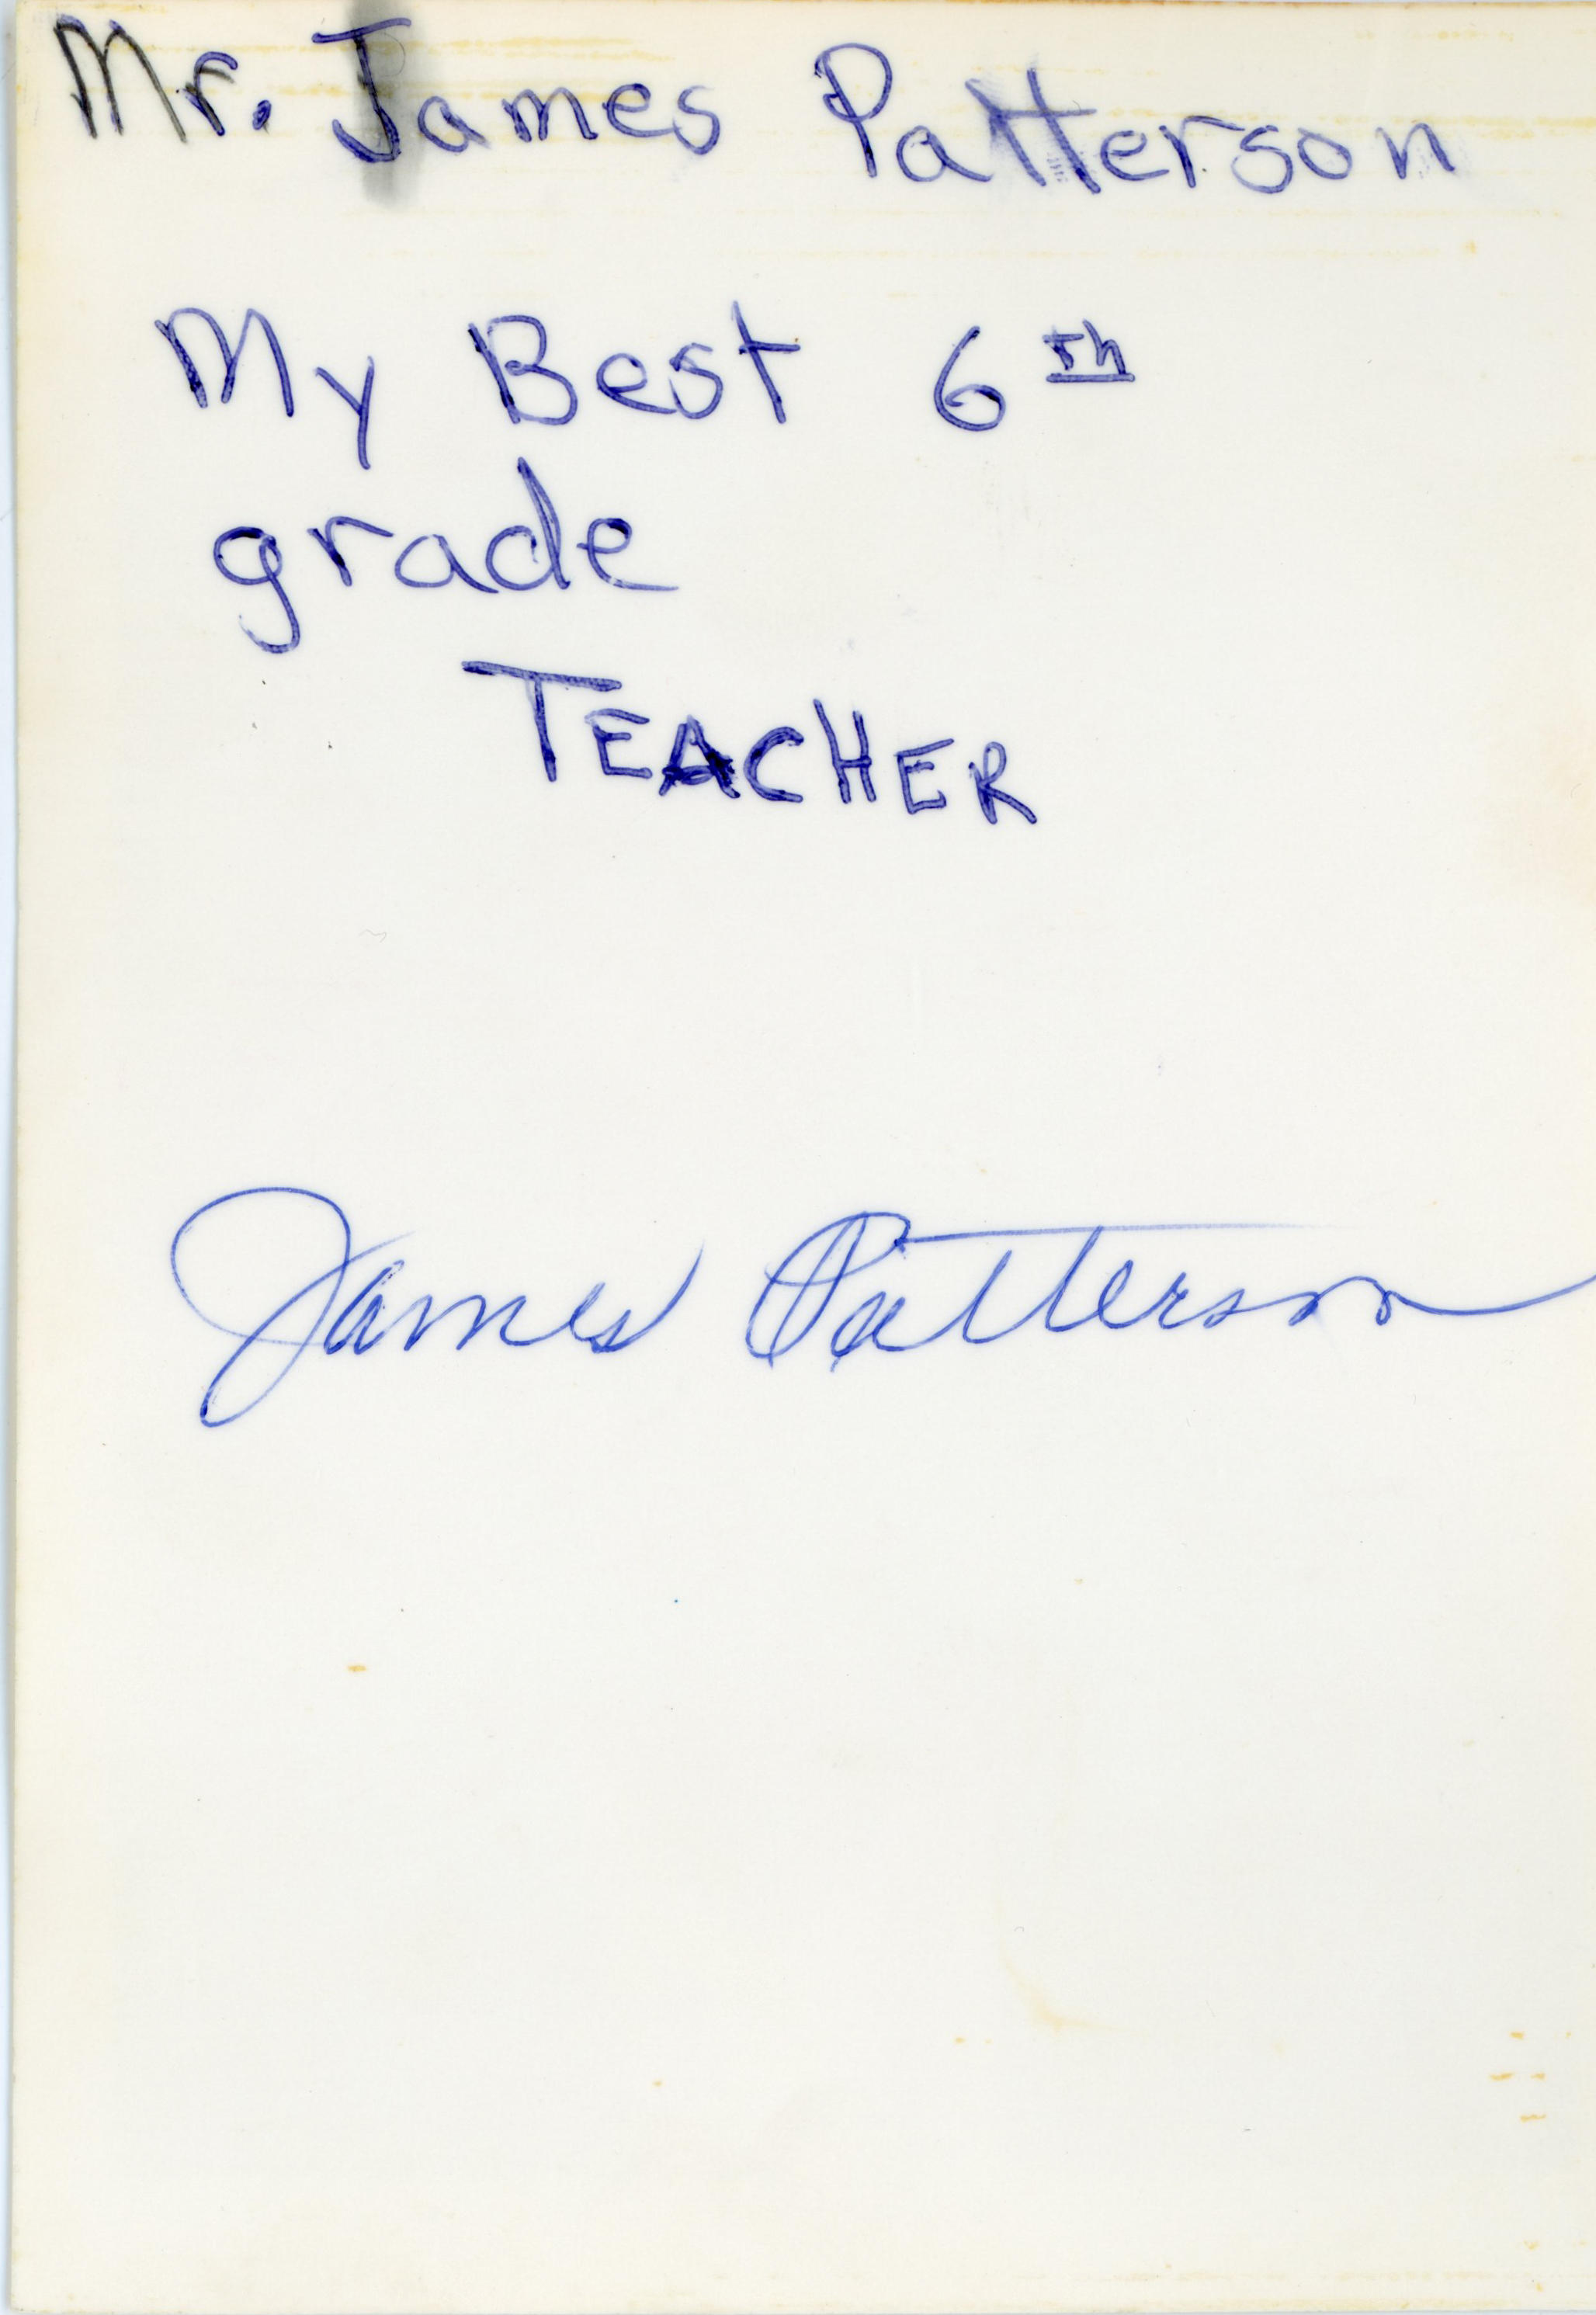 Mr. James Patterson
My Best 6th
grade
TEACHER
James Patterson